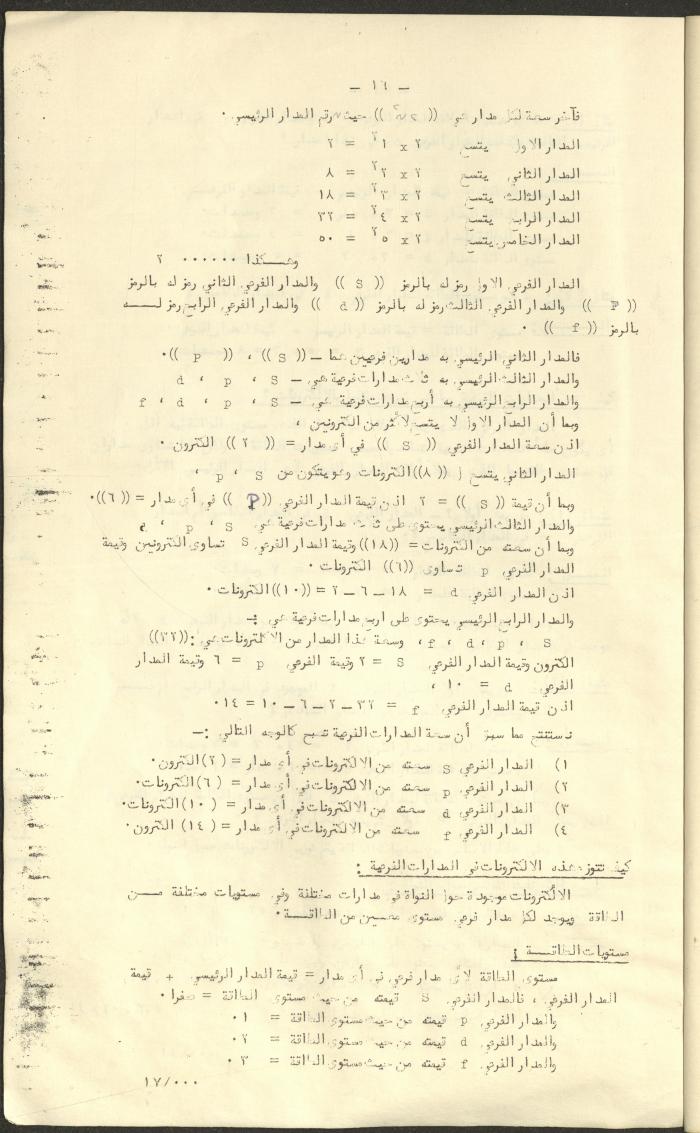 — ١٦ —
فآخر سعة لكل مدار هي (( ٢ن٢ )) حيث ن رقم المدار الرئيسي ·
المدار الاول يتسع ٢ x ١٢ = ٢
المدار الثاني يتسع ٢ x ٢٢ = ٨
المدار الثالث يتسع ٢ x ٣٢ = ١٨
المدار الرابع يتسع ٢ x ٤٢ = ٣٢
المدار الخامس يتسع ٢ x ٥٢ = ٥٠
وهكذا ······ ٢
المدار الفرعي الاول رمز له بالرمز (( S )) والمدار الفرعي الثاني رمز له بالرمز
(( P )) والمدار الفرعي الثالث رمز له بالرمز (( d )) والمدار الفرعي الرابع رمز لــــه
بالرمز (( f )) ·
فالمدار الثاني الرئيسي به مدارين فرعيين هما — (( S )) ، (( P )) ·
والمدار الثالث الرئيسي به ثلاث مدارات فرعية هي — S ، p ، d
والمدار الرابع الرئيسي به أربع مدارات فرعية هي — S ، p ، d ، f
وبما أن المدار الاول لا يتسع لأكثر من الكترونين ،
اذن سعة المدار الفرعي (( S )) في أي مدار = (( ٢ )) الكترون ·
المدار الثاني يتسع ل ((٨)) الكترونات وهو يتكون من S ، p ،
وبما أن قيمة (( S )) = ٢ اذن قيمة المدار الفرعي (( P )) في أي مدار = ((٦)) ·
والمدار الثالث الرئيسي يحتوى على ثلاث مدارات فرعية هي S ، p ، d
وبما أن سعته من الكترونات = ((١٨)) وقيمة المدار الفرعي S تساوى الكترونين وقيمة
المدار الفرعي p تساوى ((٦)) الكترونات ·
اذن المدار الفرعي d = ١٨ — ٦ — ٢ = ((١٠)) الكترونات ·
والمدار الرابع الرئيسي يحتوى على اربع مدارات فرعية هي :—
S ، p ، d ، f ، وسعة هذا المدار من الالكترونات هي :((٣٢))
الكترون وقيمة المدار الفرعي S = ٢ وقيمة الفرعي p = ٦ وقيمة المدار
الفرعي d = ١٠ ،
اذن قيمة المدار الفرعي f = ٣٢ — ٢ — ٦ — ١٠ = ١٤ ·
نستنتج مما سبق أن سعة المدارات الفرعية تصبح كالوجه التالي :—
١) المدار الفرعي S سعته من الالكترونات في أي مدار = ( ٢ ) الكترون ·
٢) المدار الفرعي p سعته من الالكترونات في أي مدار = ( ٦ ) الكترونات ·
٣) المدار الفرعي d سعته من الالكترونات في أي مدار = ( ١٠ ) الكترونات ·
٤) المدار الفرعي f سعته من الالكترونات في أي مدار = ( ١٤ ) الكترون ·
كيف تتوزع هذه الالكترونات في المدارات الفرعية :
الالكترونات موجودة حول النواة في مدارات مختلفة وفي مستويات مختلفة مـــن
الطاقة ويوجد لكل مدار فرعي مستوى معين من الطاقــــة ·
مستويات الطاقـــة :
مستوى الطاقة لأي مدار فرعي في أي مدار = قيمة المدار الرئيسي + قيمة
المدار الفرعي ، فالمدار الفرعي S قيمته من حيث مستوى الطاقة = صفرا ·
والمدار الفرعي p قيمته من حيث مستوى الطاقة = ١ ·
والمدار الفرعي d قيمته من حيث مستوى الطاقة = ٢ ·
والمدار الفرعي f قيمته من حيث مستوى الطاقة = ٣ ·
١٧/٠٠٠